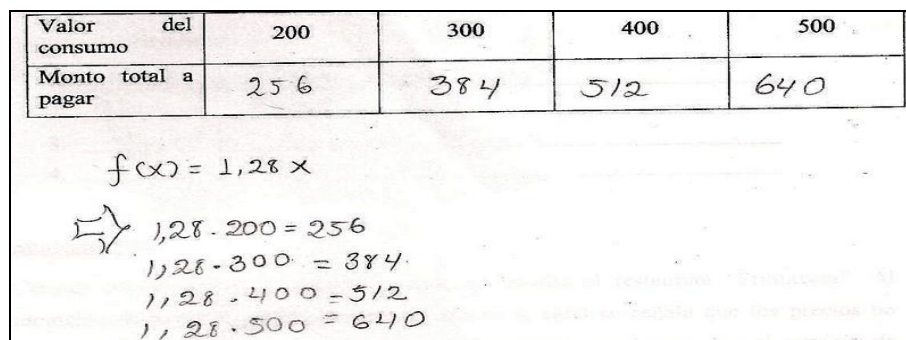 Valor del consumo 200 300 400 500
Monto total a pagar 256 384 512 640
3.
4.
f(x) = 1,28 x
⇒ 1,28 . 200 = 256
1,28 . 300 = 384
1,28 . 400 = 512
1,28 . 500 = 640